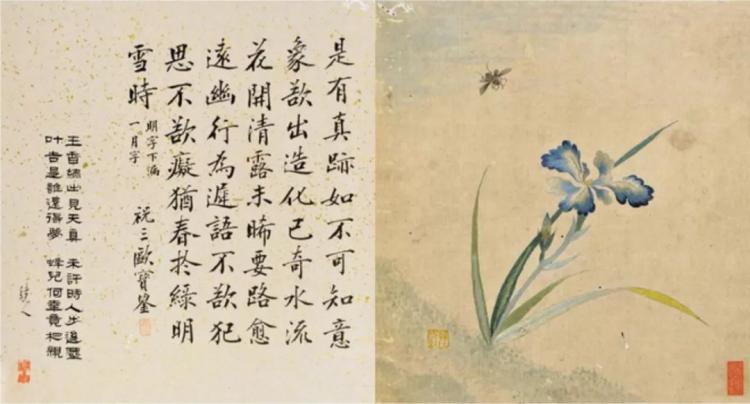 是有真跡如不可知意
象欲出造化已奇水流
花開清露未晞要路愈
遠幽行為遲語不欲犯
思不欲癡猶春於綠明
雪時
明字下漏
一月字
祝三歐寶鋆
出見天真 未許時人步
叶吉是誰還得夢 蜂兒何事竟相親